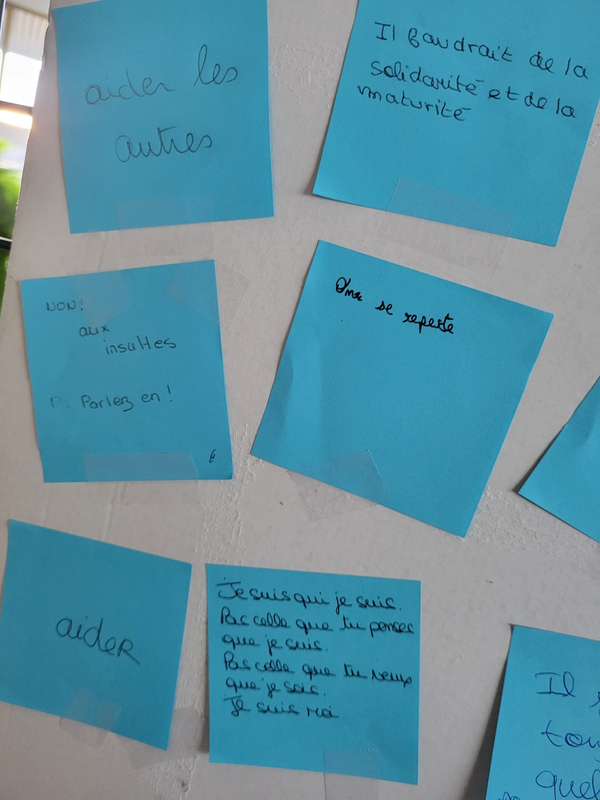 aider les
autres
Il faudrait de la
solidarité et de la
maturité
NON!
aux
insultes
Parlez en!
se repecte
aider
Je suis qui je suis.
Pas celle que tu penses
que je suis.
Pas celle que tu veux
que je sois.
Je suis Moi
Il
quel